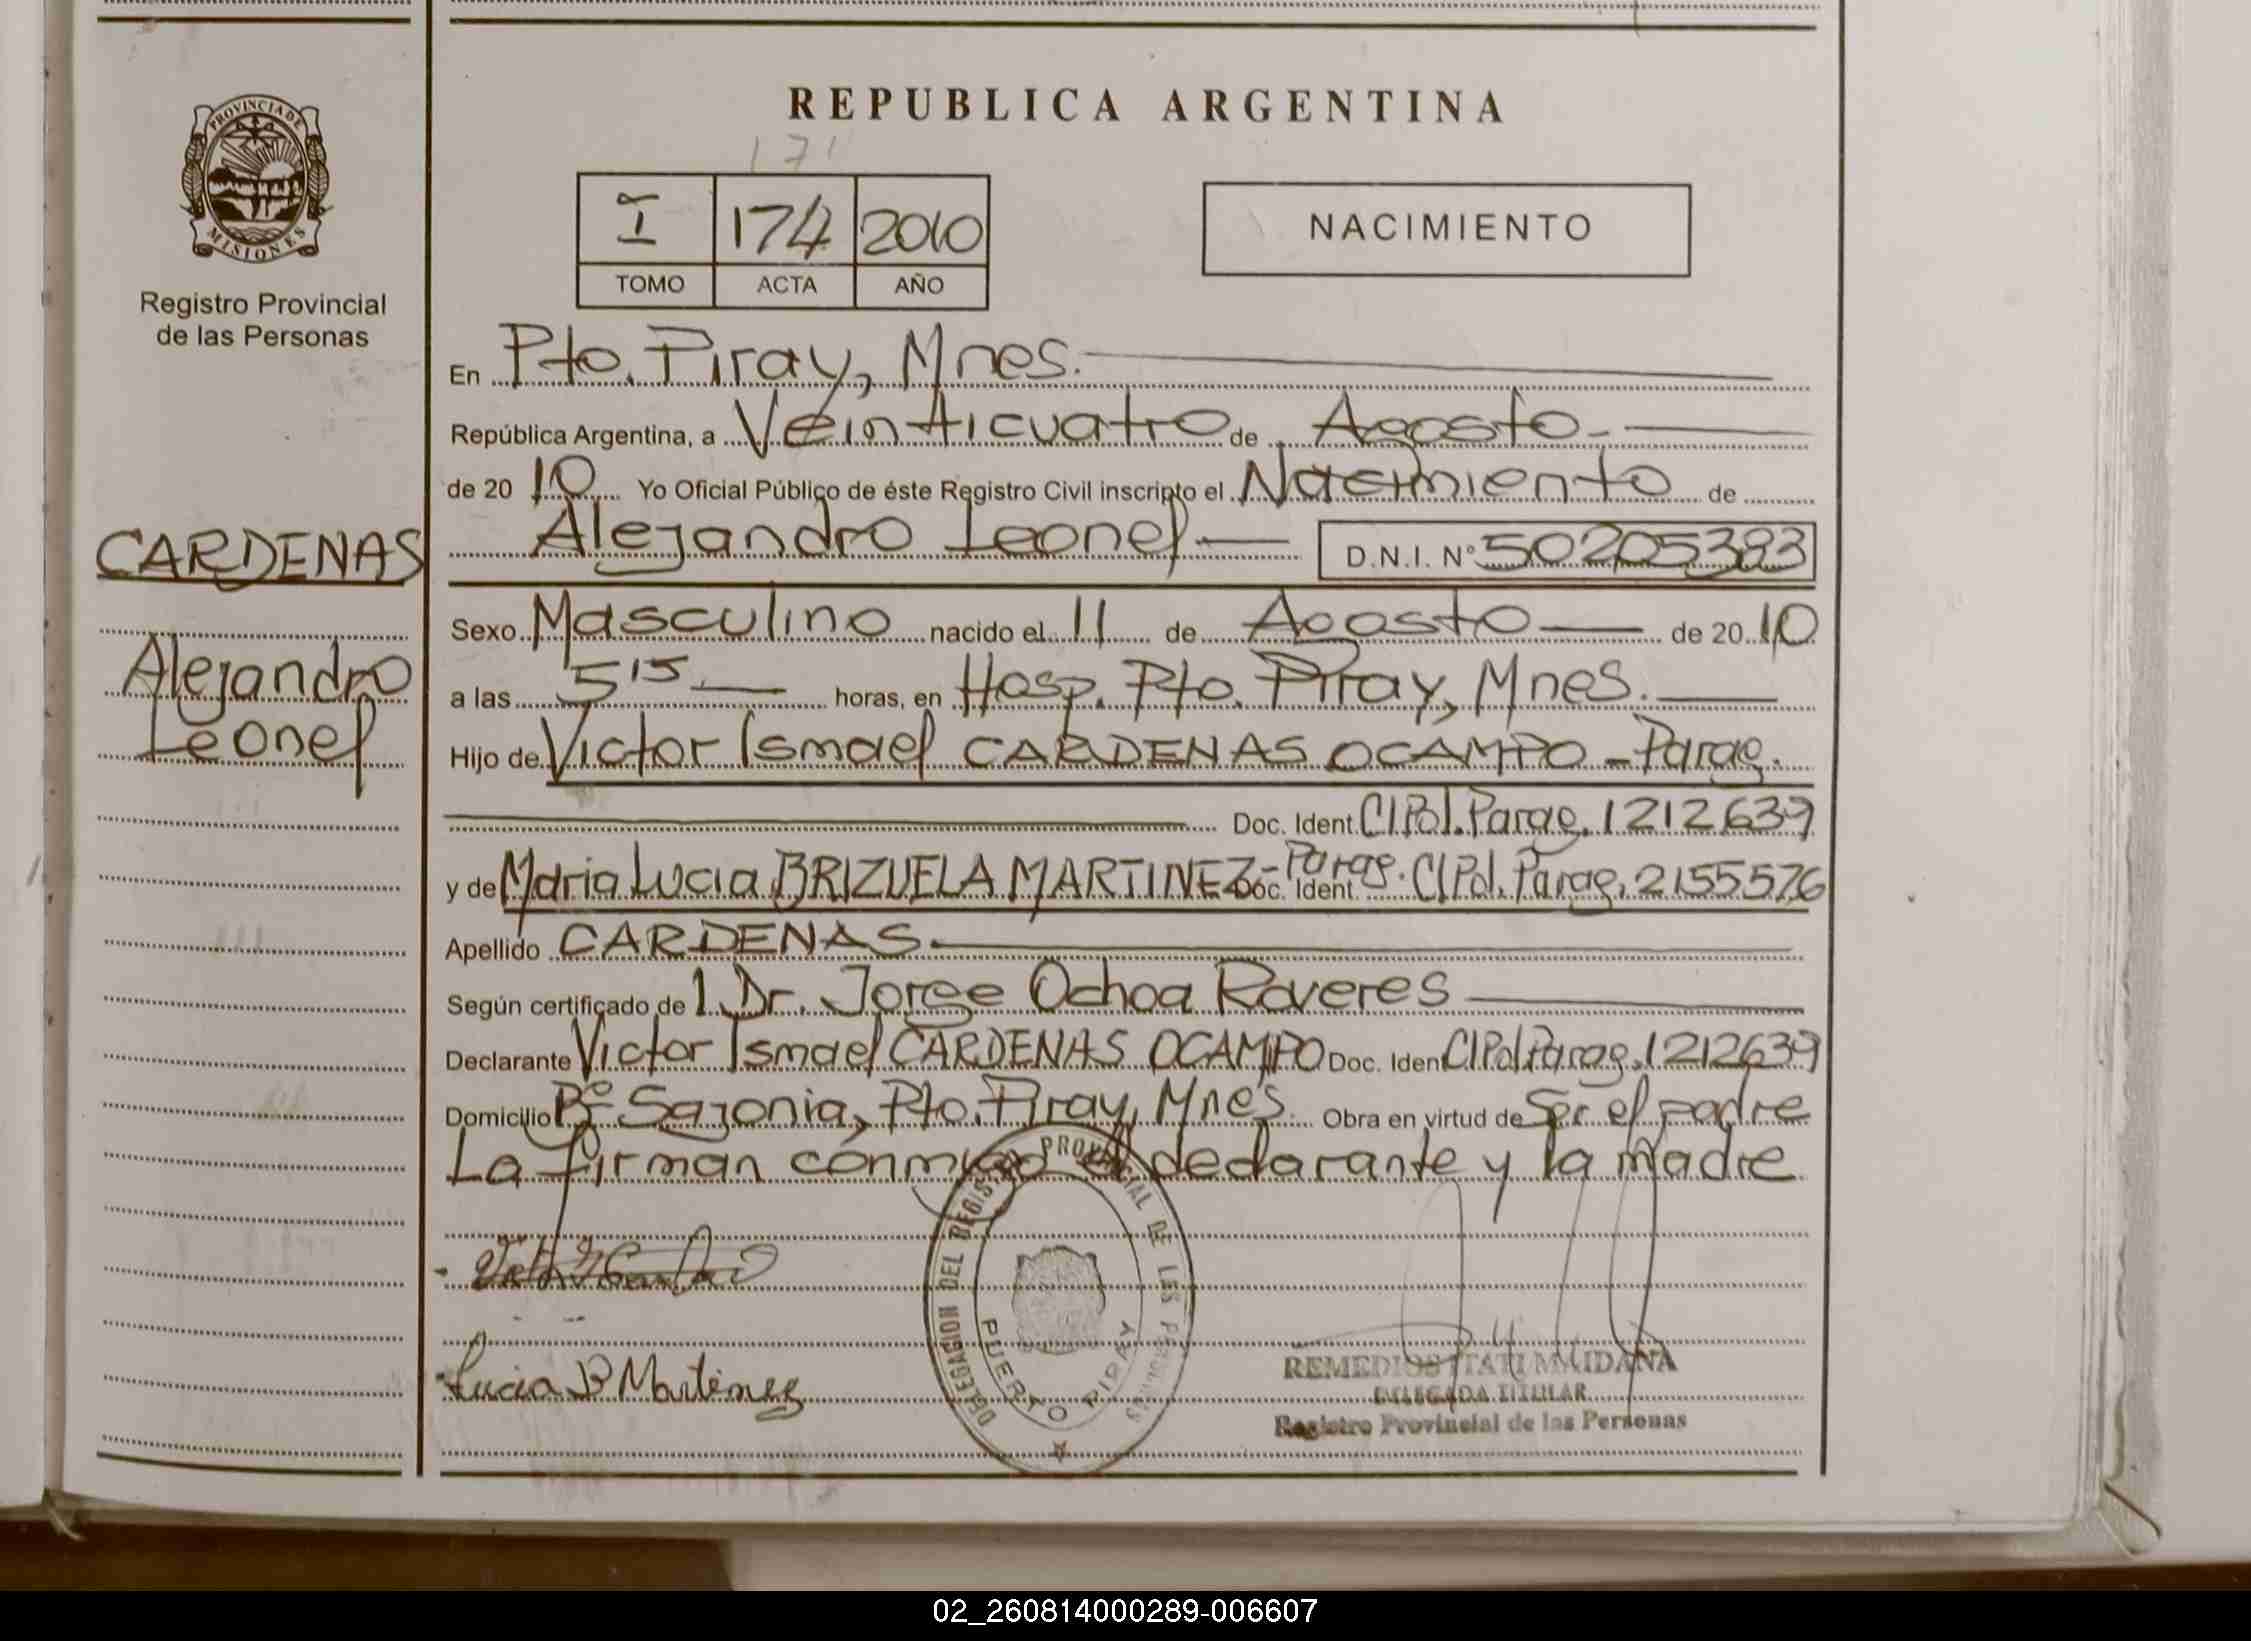 REPUBLICA ARGENTINA
171
I 174 2010
TOMO ACTA AÑO
NACIMIENTO
PROVINCIA DE MISIONES
Registro Provincial
de las Personas
CARDENAS
Alejandro
Leonel
En Pto. Piray, Mnes.
República Argentina, a Veinticuatro de Agosto
de 2010 Yo Oficial Público de éste Registro Civil inscripto el Nacimiento de
Alejandro Leonel D.N.I. Nº 50205383
Sexo Masculino nacido el 11 de Agosto de 2010
a las 5 15 horas, en Hosp. Pto. Piray, Mnes.
Hijo de Victor Ismael CARDENAS OCAMPO - Parag.
Doc. Ident. CIPol. Parag. 1212639
y de Maria Lucia BRIZUELA MARTINEZ - Parag. Doc. Ident. CIPol. Parag. 2155576
Apellido CARDENAS
Según certificado de 1. Dr. Jorge Ochoa Roveres
Declarante Victor Ismael CARDENAS OCAMPO Doc. Ident CIPol Parag. 1212639
Domicilio Bº Sajonia, Pto. Piray, Mnes. Obra en virtud de Ser el padre
La firman conmigo el declarante y la madre
DELEGACION DEL REGISTRO PROVINCIAL DE LAS PERSONAS
PUERTO PIRAY
Lucia B Martinez
REMEDIOS ITATI MAIDANA
DELEGADA TITULAR
Registro Provincial de las Personas
02_260814000289-006607